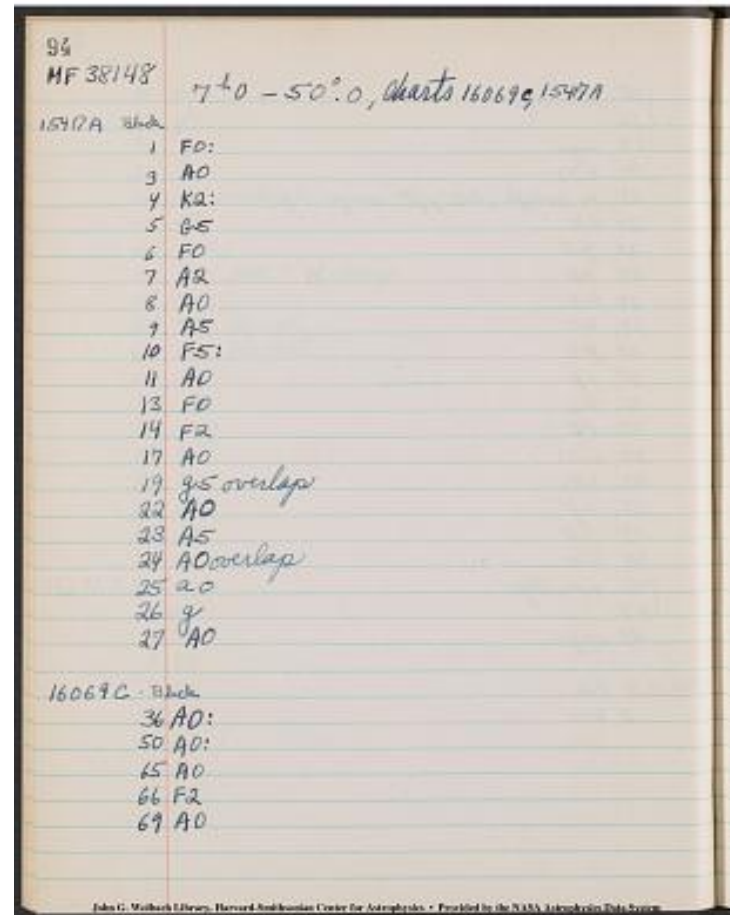 94
MF 38148
7ʰ0 - 50°.0, Charts 16069C, 1547A
1547A Black
1 F0:
3 A0
4 K2:
5 G5
6 F0
7 A2
8 A0
9 A5
10 F5:
11 A0
13 F0
14 F2
17 A0
19 g5 overlap
22 A0
23 A5
24 A0 overlap
25 a0
26 g
27 A0
16069C Black
36 A0:
50 A0:
65 A0
66 F2
69 A0
John G. Wolbach Library, Harvard-Smithsonian Center for Astrophysics • Provided by the NASA Astrophysics Data System